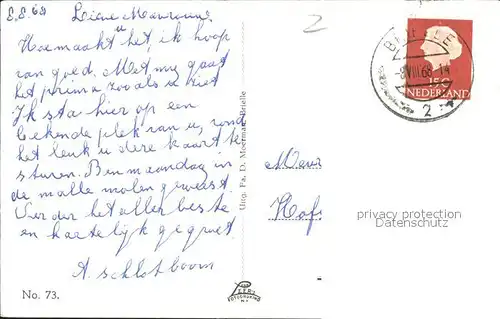 8.8.68 Lieve Mevrouw
Hoe maakt u het, ik hoop
van goed. Met my gaat
het prima zoo als u ziet
Ik sta hier op een
bekende plek van u, vond
het leuk u dere kaart te
sturen. Ben maandag in
de malle molen geweest.
Verder het aller beste
en hartelijk gegroet
A. Schlotboom
No. 73.
Uitg. Fa. D. Meerman, Brielle
VAN LEER'S
FOTODRUKIND
N.V.
2
BRIELLE
-8.VIII.68.-14
2
15c
NEDERLAND
Mevr
Hofs
privacy protection
Datenschutz